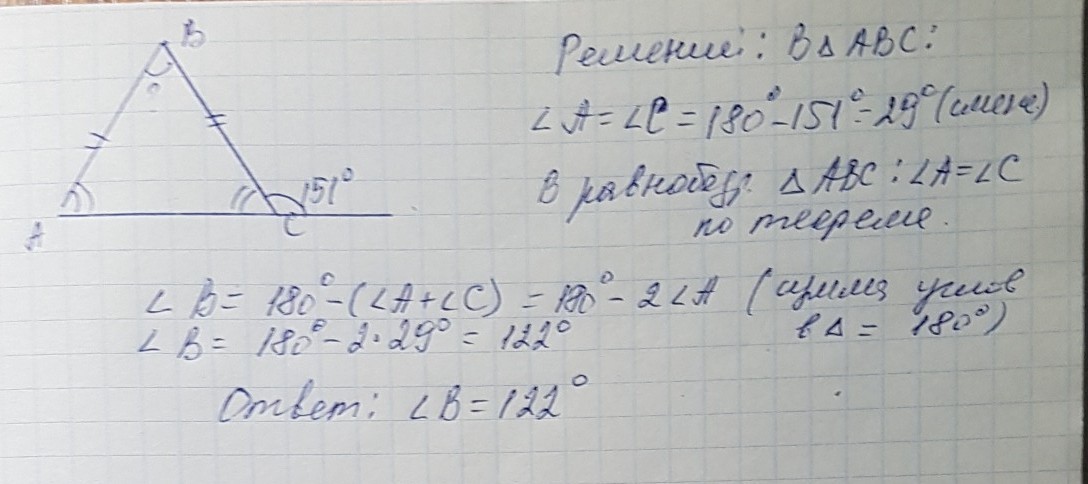 B
A
C
151°
Решение: В △ ABC:
∠A = ∠C = 180° - 151° = 29° (смеж)
В равнобедр. △ ABC: ∠A = ∠C
по теореме.
∠B = 180° - (∠A + ∠C) = 180° - 2∠A (сумма углов
в △ = 180°)
∠B = 180° - 2·29° = 122°
Ответ: ∠B = 122°